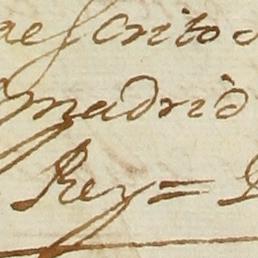 escrito
madrid
Rey=